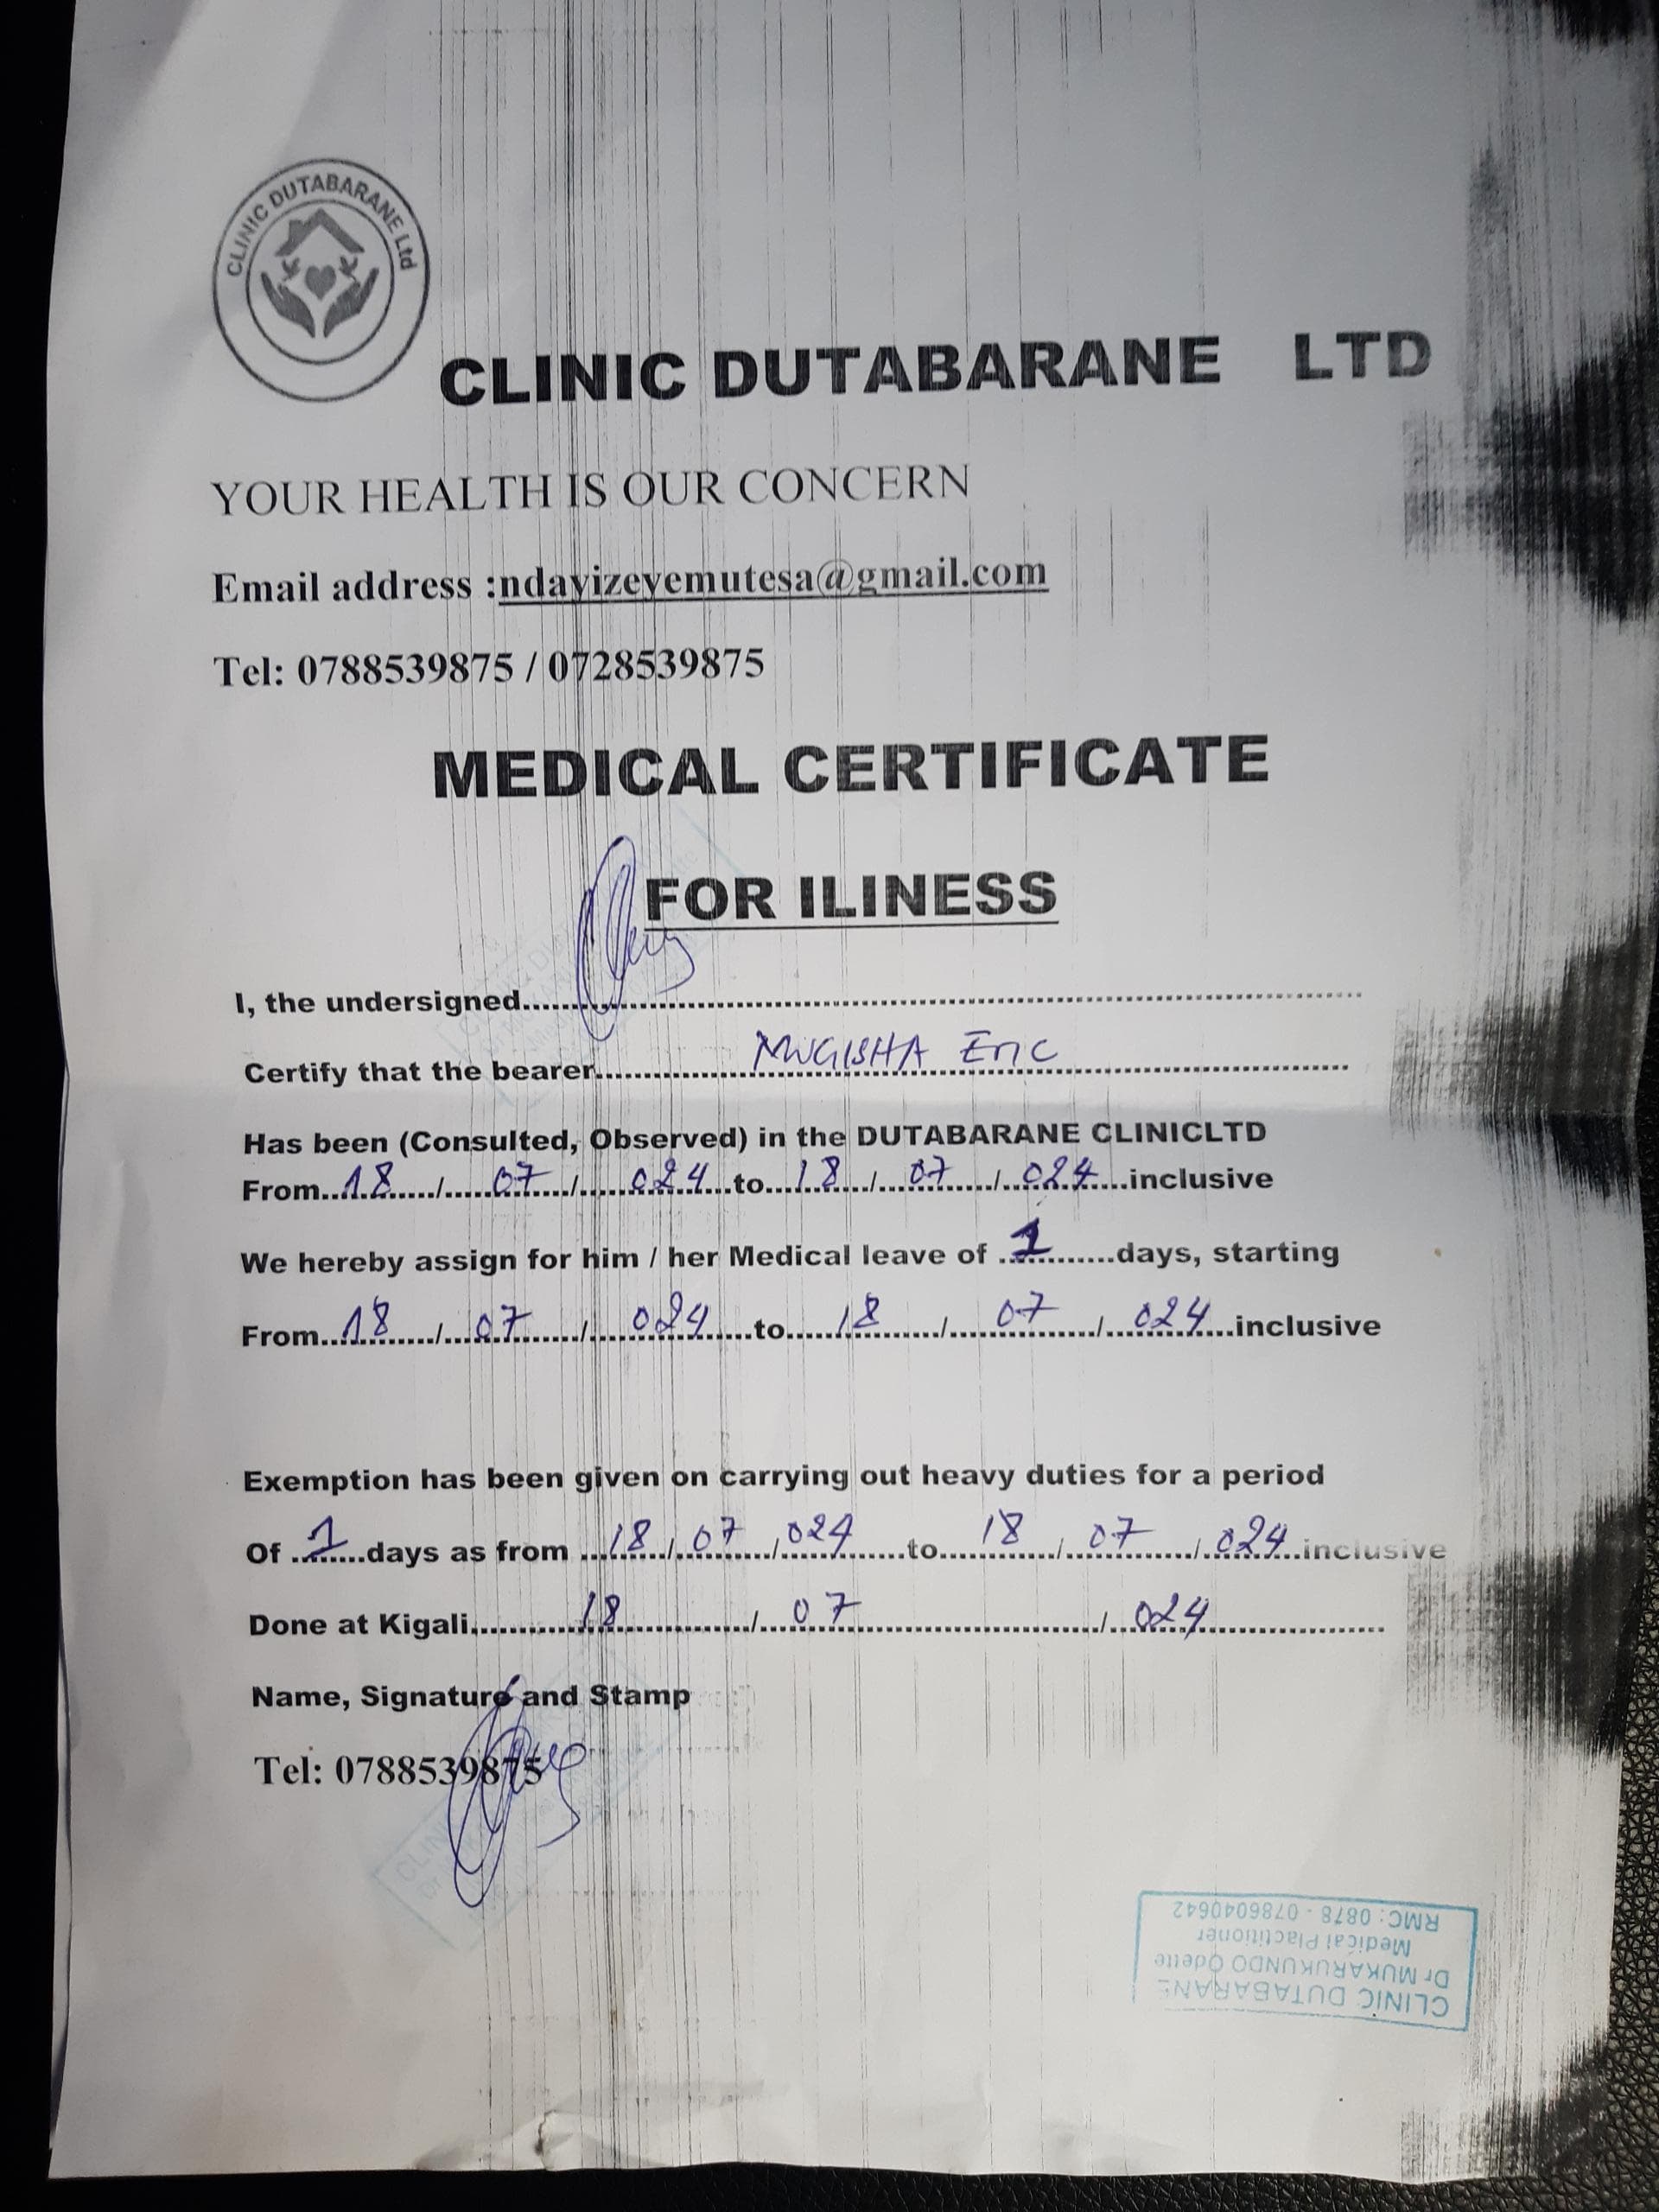 CLINIC DUTABARANE Ltd
CLINIC DUTABARANE LTD
YOUR HEALTH IS OUR CONCERN
Email address :ndayizeyemutesa@gmail.com
Tel: 0788539875 / 0728539875
MEDICAL CERTIFICATE
FOR ILINESS
I, the undersigned..............................
Certify that the bearer.......... MUGISHA Eric ..........
Has been (Consulted, Observed) in the DUTABARANE CLINICLTD
From..18..../....07..../....024...to...18.../...07..../...024....inclusive
We hereby assign for him / her Medical leave of ...1.......days, starting
From..18..../...07..../....024....to....18..../....07..../...024...inclusive
Exemption has been given on carrying out heavy duties for a period
Of ...1...days as from ...18.../..07.../..024....to....18..../...07..../..024..inclusive
Done at Kigali..........18........../...07........../...024..........
Name, Signature and Stamp
Tel: 0788539875
CLINIC DUTABARANE
Dr MUKARUKUNDO Odette
Medical Practitioner
RMC: 0878 - 0786040642